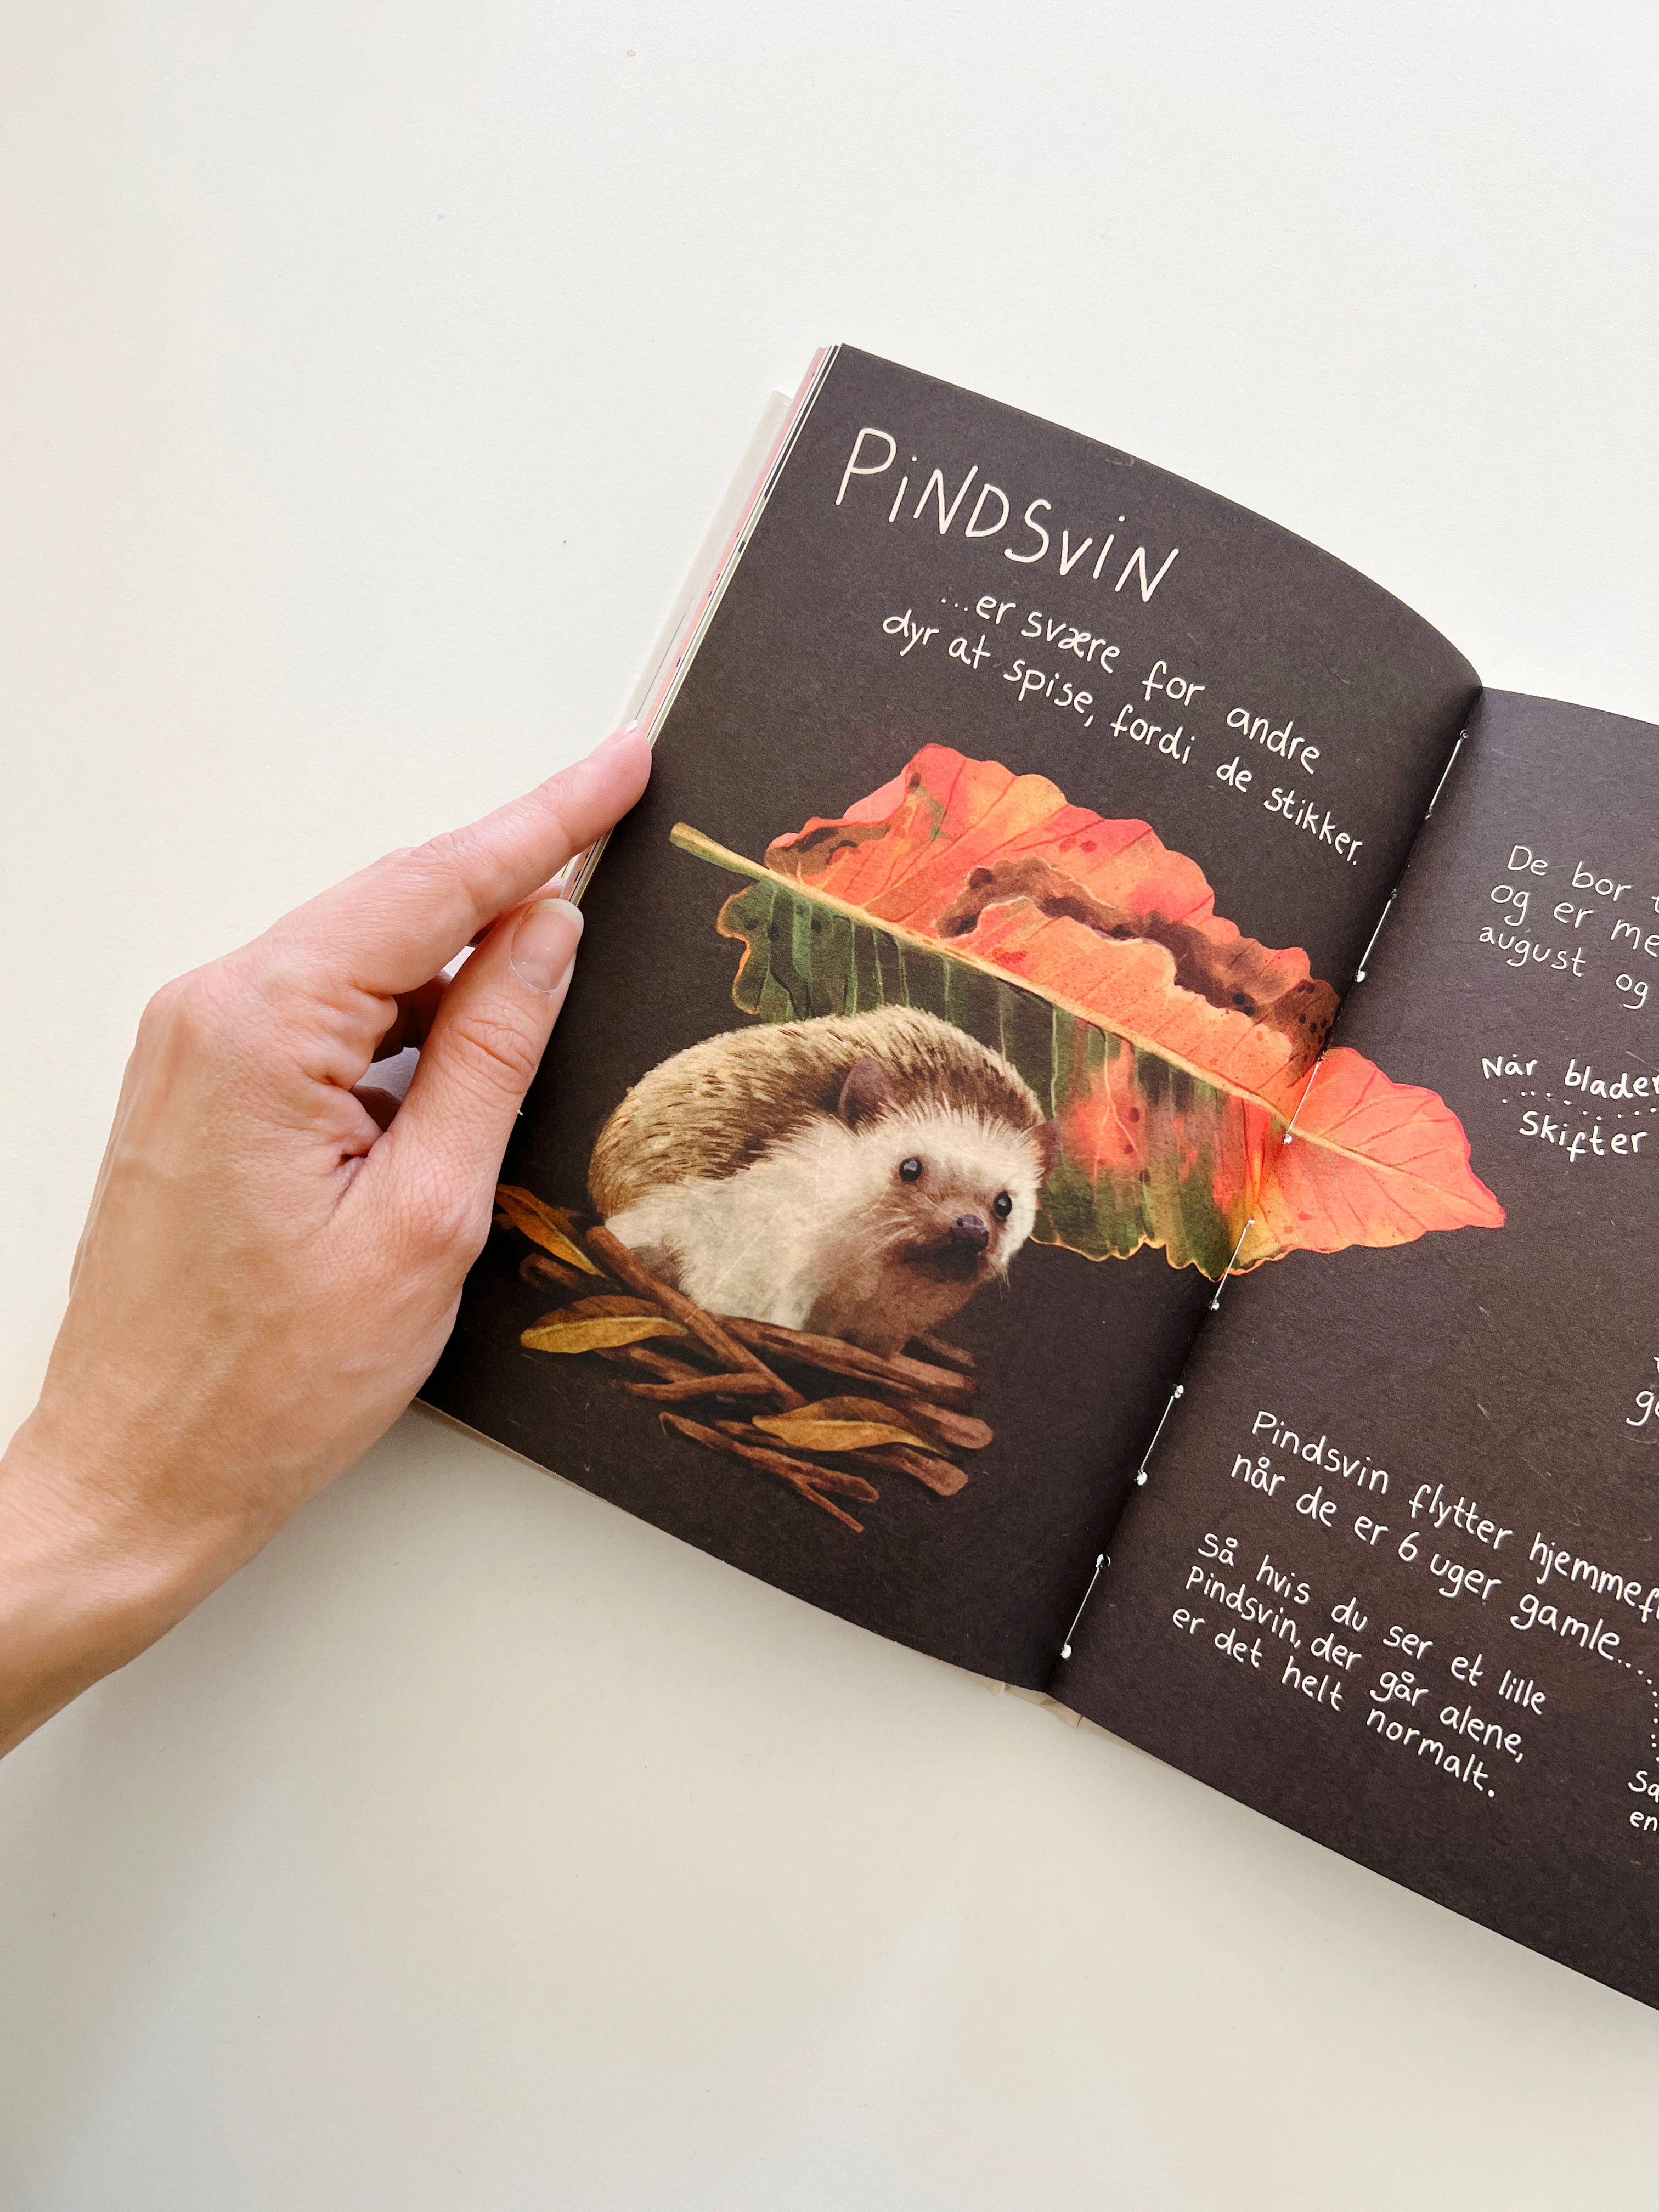 PiNDSViN
...er svære for andre
dyr at spise, fordi de stikker.
De bor
og er
august og
Når
skifter
Pindsvin flytter
når de er 6 uger gamle...
Så hvis du ser et lille
pindsvin, der går alene,
er det helt normalt.